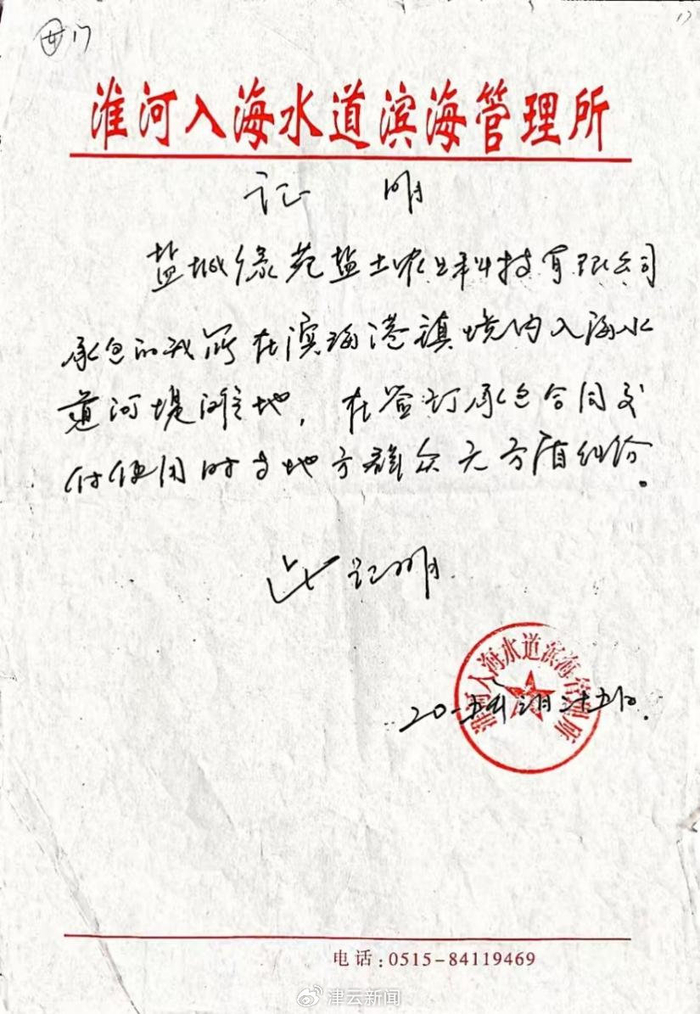 证17
17
淮河入海水道滨海管理所
证 明
盐城绿苑盐土农业科技有限公司
承包的我所在滨海港镇境内入海水
道河堤滩地，在签订承包合同交
付使用时与地方群众无矛盾纠纷。
此证明.
淮河入海水道滨海管理所
20一五年三月二十五日.
电话:0515-84119469
津云新闻